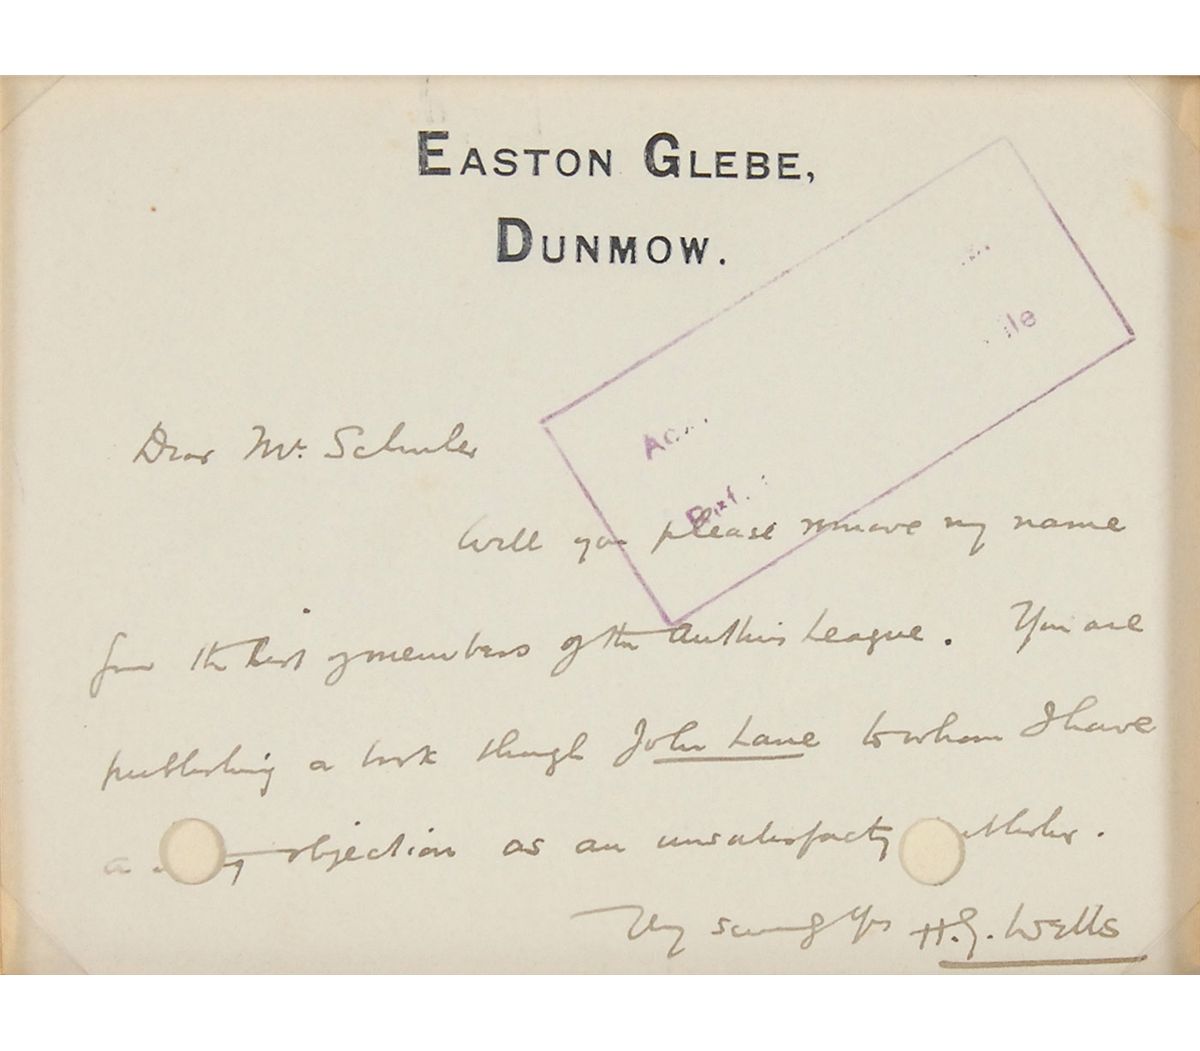 EASTON GLEBE,
DUNMOW.
Dear Mr. Schuler
Will you please remove my name
from the list of members of the Authors League. You are
publishing a book through John Lane to whom I have
a objection as an unsatisfactory
Very sincerely yrs H.G. Wells